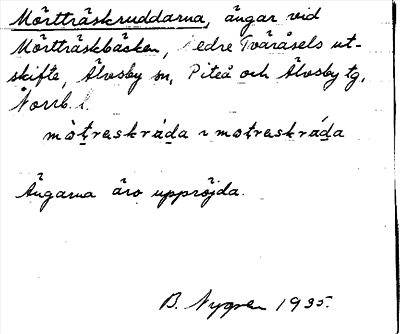 Mörtträskruddarna, ängar vid
Mörtträskbäcken, edre Tväråsels ut-
skifte, Älvsby sn, Piteå och Älvsby tg,
Norrb. l.
mö̀traskráda ~ motraskráda
Ängarna äro uppröjda.
B. Nygren 1935.